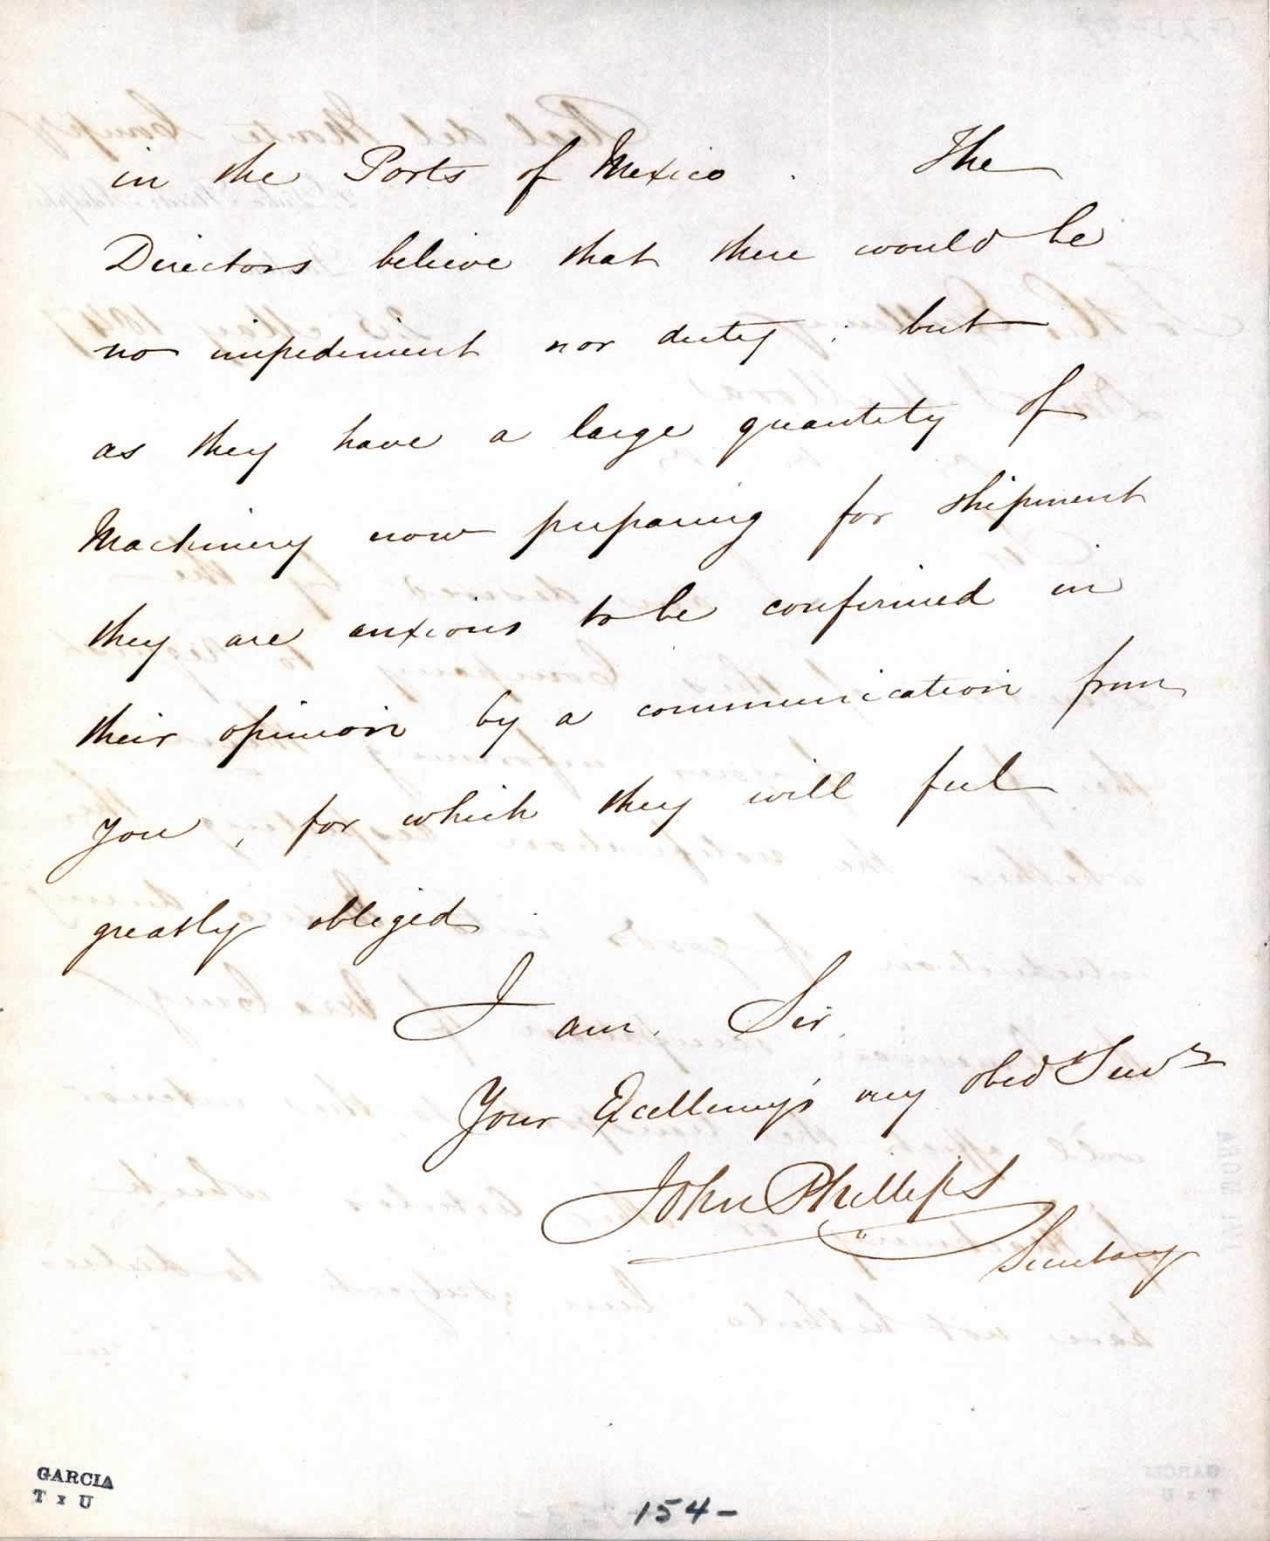 in the Ports of Mexico . The
Directors believe that there would be
no impediment nor duty ; but
as they have a large quantity of
Machinery now preparing for shipment
they are anxious to be confirmed in
their opinion by a communication from
you , for which they will feel
greatly obliged
I am . Sir .
Your Excellency's very obed.t Serv.t
John Phillips
Secretary
GARCIA
T x U
154-